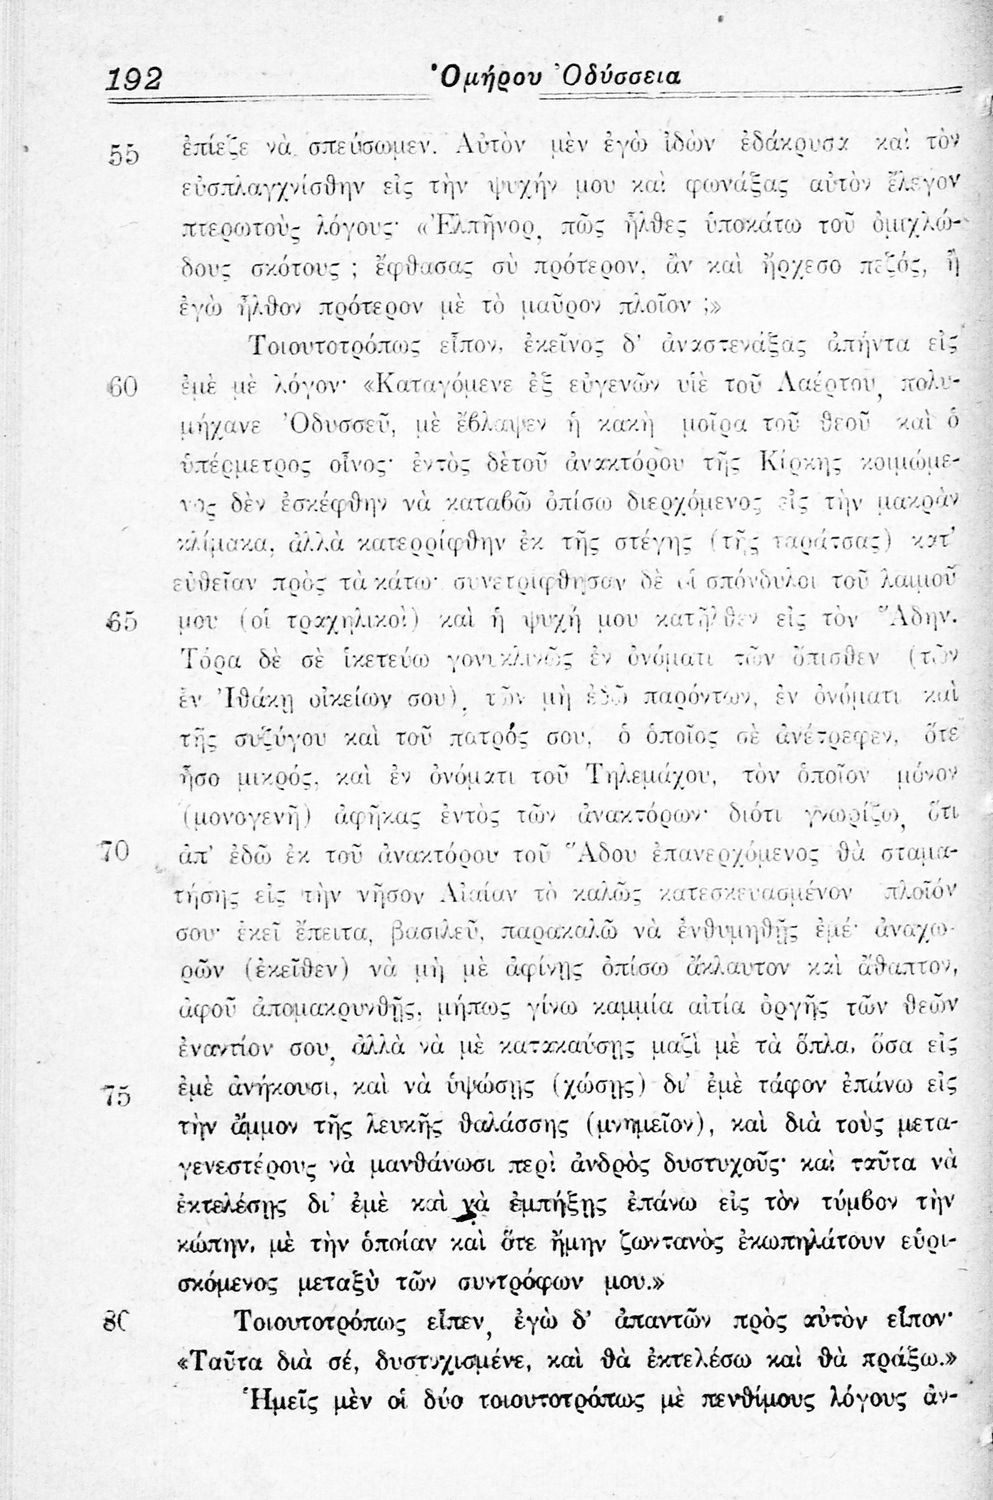 192 Ὁμήρου Ὀδύσσεια
55 ἐπίεζε νὰ σπεύσωμεν. Αὐτὸν μὲν ἐγὼ ἰδὼν ἐδάκρυσα καὶ τὸν
εὐσπλαγχνίσθην εἰς τὴν ψυχήν μου καὶ φωνάξας αὐτὸν ἔλεγον
πτερωτοὺς λόγους· «Ἐλπῆνορ, πῶς ἦλθες ὑποκάτω τοῦ ὁμιχλώ-
δους σκότους ; ἔφθασας σὺ πρότερον, ἂν καὶ ἤρχεσο πεζός, ἢ
ἐγὼ ἦλθον πρότερον μὲ τὸ μαῦρον πλοῖον ;»
Τοιουτοτρόπως εἶπον, ἐκεῖνος δ’ ἀναστενάξας ἀπήντα εἰς
60 ἐμὲ μὲ λόγον· «Καταγόμενε ἐξ εὐγενῶν υἱὲ τοῦ Λαέρτου, πολυ-
μήχανε Ὀδυσσεῦ, μὲ ἔβλαψεν ἡ κακὴ μοῖρα τοῦ θεοῦ καὶ ὁ
ὑπέρμετρος οἶνος· ἐντὸς δὲτοῦ ἀνακτόρου τῆς Κίρκης κοιμώμε-
νος δὲν ἐσκέφθην νὰ καταβῶ ὀπίσω διερχόμενος εἰς τὴν μακρὰν
κλίμακα, ἀλλὰ κατερρίφθην ἐκ τῆς στέγης (τῆς ταράτσας) κατ’
εὐθεῖαν πρὸς τὰ κάτω· συνετρίφθησαν δὲ οἱ σπόνδυλοι τοῦ λαιμοῦ
65 μου (οἱ τραχηλικοὶ) καὶ ἡ ψυχή μου κατῆλθεν εἰς τὸν Ἅδην.
Τόρα δὲ σὲ ἱκετεύω γονυκλινῶς ἐν ὀνόματι τῶν ὄπισθεν (τῶν
ἐν Ἰθάκῃ οἰκείων σου), τῶν μὴ ἐδῶ παρόντων, ἐν ὀνόματι καὶ
τῆς συζύγου καὶ τοῦ πατρός σου, ὁ ὁποῖος σὲ ἀνέτρεφεν, ὅτε
ἦσο μικρός, καὶ ἐν ὀνόματι τοῦ Τηλεμάχου, τὸν ὁποῖον μόνον
(μονογενῆ) ἀφῆκας ἐντὸς τῶν ἀνακτόρων· διότι γνωρίζω, ὅτι
70 ἀπ’ ἐδῶ ἐκ τοῦ ἀνακτόρου τοῦ Ἅδου ἐπανερχόμενος θὰ σταμα-
τήσῃς εἰς τὴν νῆσον Αἰαίαν τὸ καλῶς κατεσκευασμένον πλοῖόν
σου· ἐκεῖ ἔπειτα, βασιλεῦ, παρακαλῶ νὰ ἐνθυμηθῇς ἐμέ· ἀναχω-
ρῶν (ἐκεῖθεν) νὰ μὴ μὲ ἀφίνῃς ὀπίσω ἄκλαυτον καὶ ἄθαπτον,
ἀφοῦ ἀπομακρυνθῇς, μήπως γίνω καμμία αἰτία ὀργῆς τῶν θεῶν
ἐναντίον σου, ἀλλὰ νὰ μὲ κατακαύσῃς μαζὶ μὲ τὰ ὅπλα, ὅσα εἰς
75 ἐμὲ ἀνήκουσι, καὶ νὰ ὑψώσῃς (χώσῃς) δι’ ἐμὲ τάφον ἐπάνω εἰς
τὴν ἄμμον τῆς λευκῆς θαλάσσης (μνημεῖον), καὶ διὰ τοὺς μετα-
γενεστέρους νὰ μανθάνωσι περὶ ἀνδρὸς δυστυχοῦς· καὶ ταῦτα νὰ
ἐκτελέσῃς δι’ ἐμὲ καὶ νὰ ἐμπήξῃς ἐπάνω εἰς τὸν τύμβον τὴν
κώπην, μὲ τὴν ὁποίαν καὶ ὅτε ἤμην ζωντανὸς ἐκωπηλάτουν εὑρι-
σκόμενος μεταξὺ τῶν συντρόφων μου.»
80 Τοιουτοτρόπως εἶπεν, ἐγὼ δ’ ἀπαντῶν πρὸς αὐτὸν εἶπον·
«Ταῦτα διὰ σέ, δυστυχισμένε, καὶ θὰ ἐκτελέσω καὶ θὰ πράξω.»
Ἡμεῖς μὲν οἱ δύο τοιουτοτρόπως μὲ πενθίμους λόγους ἀν-